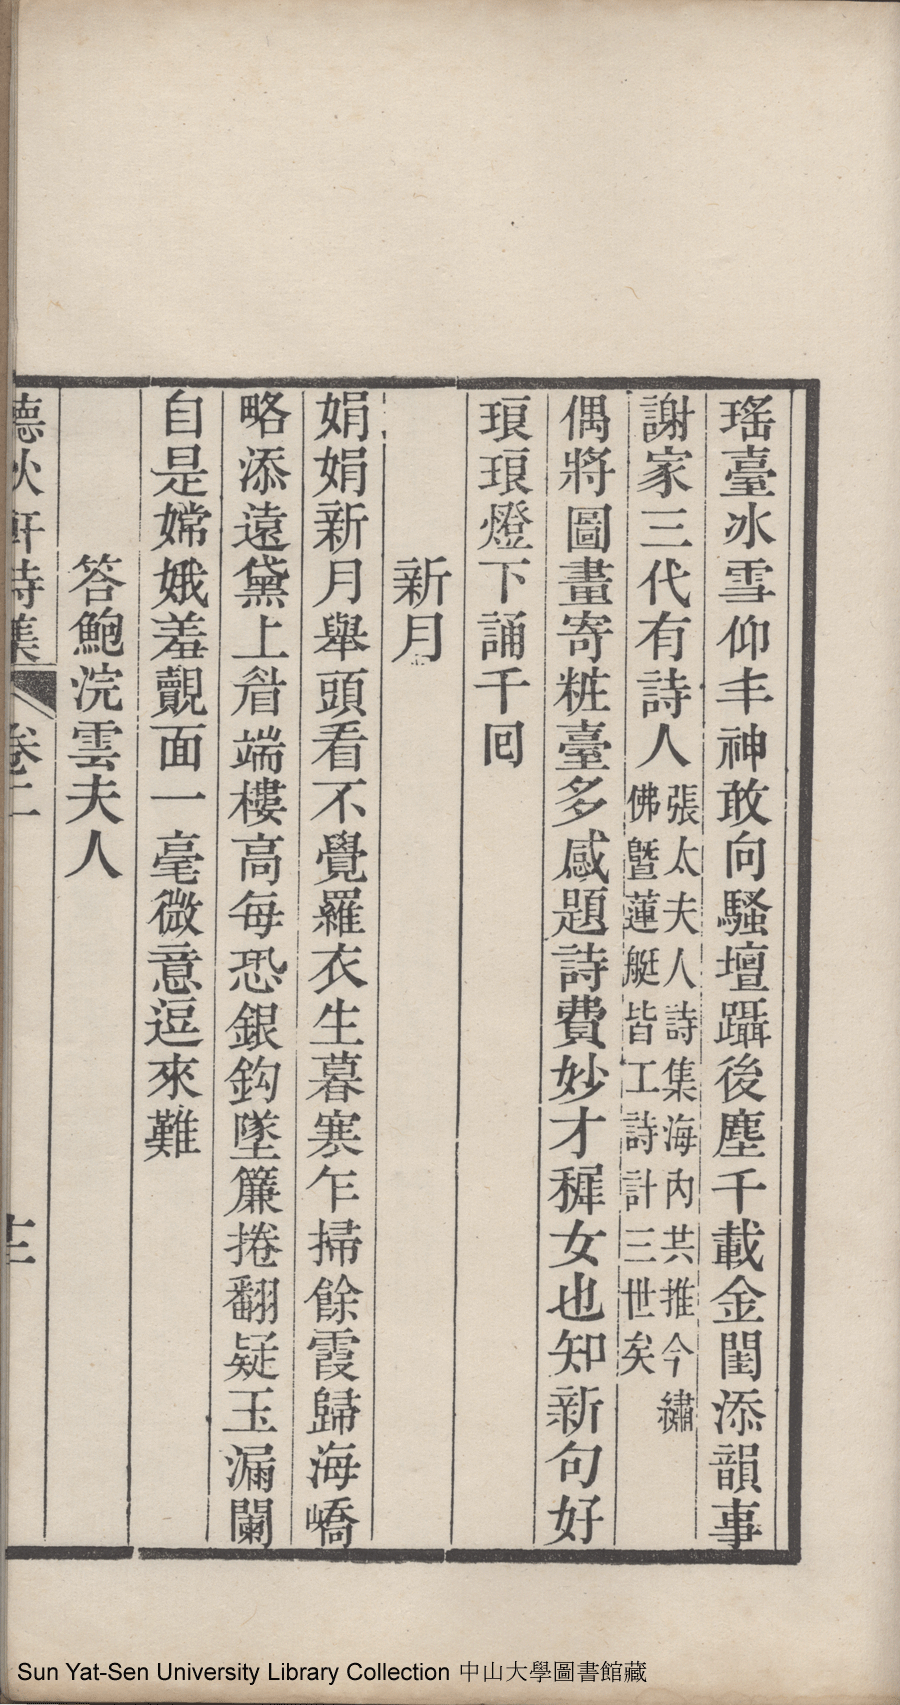 瑤臺冰雪仰丰神敢向騷壇躡後塵千載金閨添韻事
謝家三代有詩人張太夫人詩集海内共推今繡
佛暨蓮艇皆工詩計三世矣
偶將圖畫寄粧臺多感題詩費妙才穉女也知新句好
琅琅燈下誦千回
新月
娟娟新月舉頭看不覺羅衣生暮寒乍掃餘霞歸海嶠
略添遠黛上眉端樓高每恐銀鈎墜簾捲翻疑玉漏闌
自是嫦娥羞覿面一毫微意逗來難
答鮑浣雲夫人
聽秋軒詩集 卷二
Sun Yat-Sen University Library Collection 中山大學圖書館藏